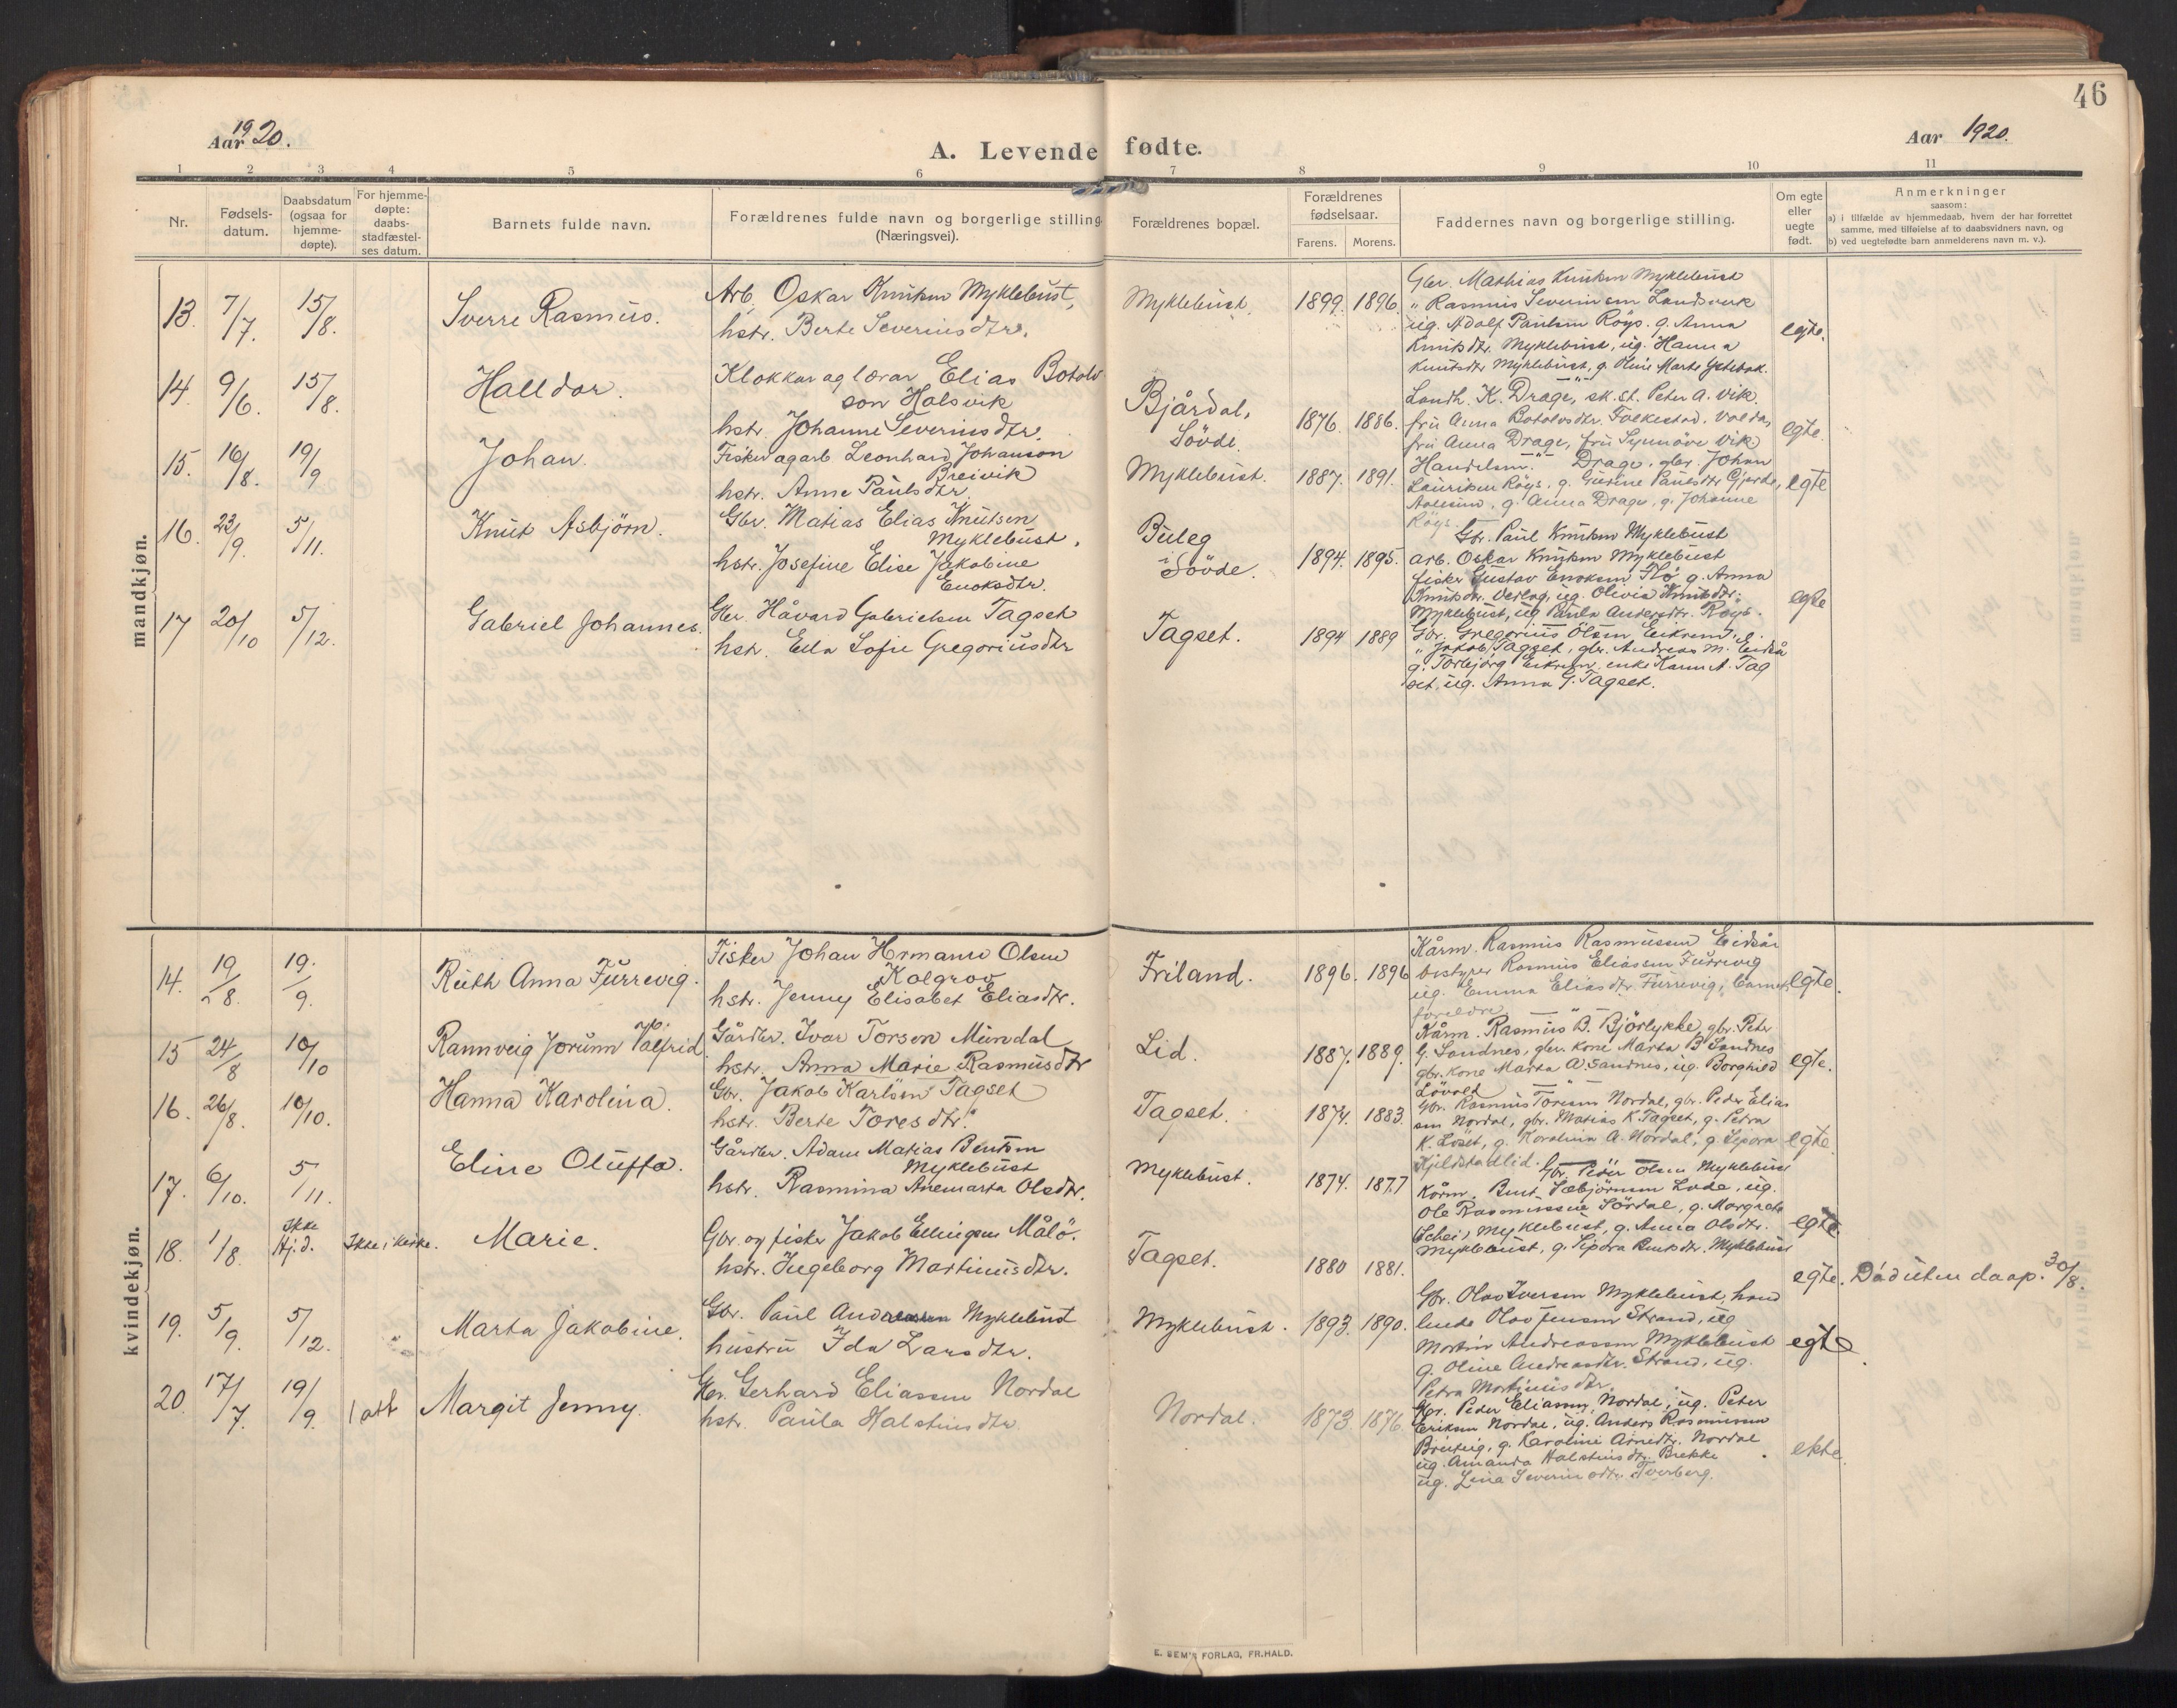 46
Aar 1920.
A. Levende fødte.
Aar 1920.
1 2 3 4 5 6 7 8 9 10 11
Nr.
Fødsels-
datum.
Daabsdatum
(ogsaa for
hjemme-
døpte).
For hjemme-
døpte:
daabs-
stadfæstel-
ses datum.
Barnets fulde navn.
Forældrenes fulde navn og borgerlige stilling
(Næringsvei).
Forældrenes bopæl.
Forældrenes
fødselsaar.
Farens. Morens.
Faddernes navn og borgerlige stilling.
Om egte
eller
uegte
født.
Anmerkninger
saasom:
a) i tilfælde av hjemmedaab, hvem der har forrettet
samme, med tilføielse af to daabsvidners navn, og
b) ved uegtefødte barn anmelderens navn m. v.).
mandkjøn.
13. 7/7. 15/8. Sverre Rasmus.
Arb. Oskar Knutsen Myklebust,
hstr. Berte Severinsdtr.
Myklebust. 1899. 1896.
Gbr. Mathias Knutsen Myklebust
" Rasmus Severinsen Landsverk
ug. Adolf Paulsen Röys. g. Anna
Knutsdtr. Myklebust, ug. Hanna
Knutsdtr Myklebust, g. Oline Marte
egte.
14. 9/6. 15/8. Halldor.
Klokkar og lærar Elias Botolv
son Halsvik
hstr. Johanne Severinsdtr.
Bjårdal,
Sövde.
1876. 1886.
Landh. K. Drage, sk.st. Peter A. Vik.
fru Anna Botolvsdtr. Folkestad. Volda,
fru Anna Drage, fru Synnöve Vik
egte.
15. 16/8. 19/9 Johan.
Fisker og arb. Leonhard Johanson
Breivik
hstr. Anne Paulsdtr.
Myklebust. 1887. 1891.
Handelsm. Drage, gbr. Johan
Lauritsen Röys, g. Gurine Paulsdtr Gjerde,
Aalesund, g. Anna Drage, g. Johanne
Röys.
egte
16. 23/9. 5/11. Knut Asbjörn.
Gbr. Matias Elias Knutsen
Myklebust,
hstr. Josefine Elise Jakobine
Enoksdtr.
Buleg
i Sövde.
1894. 1895.
Gbr. Paul Knutsen Myklebust
arb. Oskar Knutsen Myklebust
fisker Gustav Enoksen Flö g. Anna
Knutsdtr. ug. Olivia Knutsdtr.
Myklebust, ug Paula Andersdtr. Röys.
egte
17 20/10 5/12. Gabriel Johannes.
Gbr. Håvard Gabrielsen Tagset
hstr. Eda Sofie Gregoriusdtr
Tagset. 1894 1889
Gbr. Gregorius Olsen Eikrem
" Jakob Tagset, gbr. Andreas M. Eidså
g. Torbjörg Eikrem. enke Karen A. Tag
set, ug. Anna G. Tagset.
kvindekjøn.
14. 19/8. 19./9. Ruth Anna Furrevig.
Fisker Johan Hrmann Olsen
Kolgrov
hstr. Jenny Elisabet Eliasdtr.
Friland. 1896. 1896
Kårm. Rasmus Rasmussen Eidså
bestyrer Rasmus Eliassen Furrevig
ug. Emma Eliasdtr Furrevig, barnets
foreldre
egte.
15 24/8 10/10 Rannveig Jorunn Valfrid
Gårdbr. Ivar Torson Mundal
hstr. Anna Marie Rasmusdtr
Lid. 1887. 1889.
Kårm. Rasmus B. Björlykke, gbr. Peter
G. Sandnes, gbr. kone Marta B Sandnes
gbr. kone Marta A. Sandnes, ug. Borghild
Lövold
egte.
16. 26/8. 10/10. Hanna Karolina.
Gbr. Jakob Karlsen Tagset
hstr. Berte Toresdtr.
Tagset. 1874. 1883.
Gbr. Rasmus Toresen Nordal, gbr. Peder Elias
sen Nordal, gbr. Matias K Tagset, g. Petra
K. Löset, g. Karolina A. Nordal, g. Sipora
Kjeldstadlid.
egte
17. 6/10. 5/11. Eline Oluffa.
Gårdbr. Adam Matias Bentsen
Myklebust
hstr. Rasmina Anemarta Olsdtr.
Myklebust. 1874. 1877
Gbr. Peder Olsen Myklebust
Kårm. Bent Sæbjörnsen Lode, ug.
Ole Rasmussen Sördal, g. Margrete
(Schei) Myklebust, g. Anna Olsdtr.
Myklebust, g. Sipora Bentsdtr. Myklebust
egte.
18. 1/8. Ikke Hj.d. Ikke i kirke. Marie.
Gbr. og fisker Jakob Ellingsen Målö.
hstr. Ingeborg Martinusdtr.
Tagset. 1880 1881.
egte. Död uten daap. 30/8.
19. 5/9. 5/12. Marta Jakobine.
Gbr. Paul Andreassen Myklebust
hustru Ida Larsdtr.
Myklebust. 1893. 1890.
Gbr. Olav Iversen Myklebust, hand
lende Olav Jensen Strand, ug
Martin Andreassen Myklebust
g. Oline Andreasdtr. Strand, ug.
Petra Martinusdtr.
egte
20. 17/7. 19/9. Margit Jenny.
Gbr. Gerhard Eliassen Nordal
hstr. Paula Halstensdtr.
Nordal. 1873 1876.
Gbr. Peder Eliassen Nordal, ug. Peter
Eriksen Nordal, ug. Anders Rasmussen
Breiteig, g. Karoline Arnedtr. Nordal
ug. Amanda Halstensdtr. Brekke
ug. Lina Severinsdtr. Tverberg.
ekte
E. SEM'S FORLAG, FR.HALD.